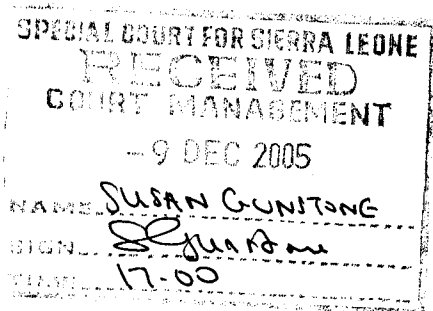 SPECIAL COURT FOR SIERRA LEONE
RECEIVED
COURT MANAGEMENT
- 9 DEC 2005
NAME SUSAN GUNSTONE
SIGN SGunstone
TIME 17-00